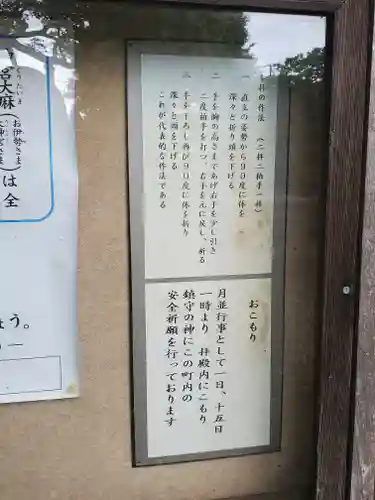 礼拝の作法 （二拝二拍手一拝）
一 直立の姿勢から90度に体を
深々と折り頭を下げる
二 手を胸の高さまであげ右手を少し引き
二度拍手を打つ、右手を元に戻し、祈る
三 手を下ろし再び90度に体を折り
深々と頭を下げる
これが代表的な作法である
おこもり
月並行事として一日、十五日
一時より 拝殿内にこもり
鎮守の神にこの町内の
安全祈願を行っております
宮大麻
たいま
（お伊勢さま
大神宮さま）
は
全
ょう。